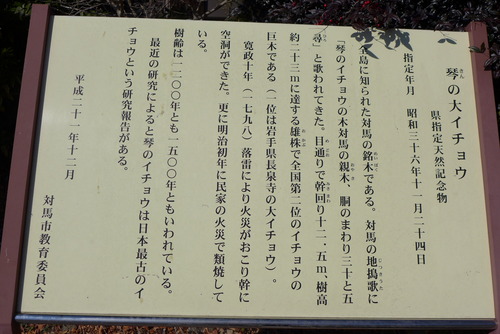 琴の大イチョウ
県指定天然記念物
指定年月 昭和三十六年十一月二十四日
全島に知られた対馬の銘木である。対馬の地搗歌に
「琴のイチョウの木対馬の親木、胴のまわり三十と五
尋」と歌われてきた。目通りで幹回り十二・五m、樹高
約二十三mに達する雄株で全国第二位のイチョウの
巨木である(一位は岩手県長泉寺の大イチョウ)。
寛政十年(一七九八)落雷により火災がおこり幹に
空洞ができた。更に明治初年に民家の火災で類焼して
いる。
樹齢は一二〇〇年とも一五〇〇年ともいわれている。
最近の研究によると琴のイチョウは日本最古のイ
チョウという研究報告がある。
平成二十一年十二月
対馬市教育委員会